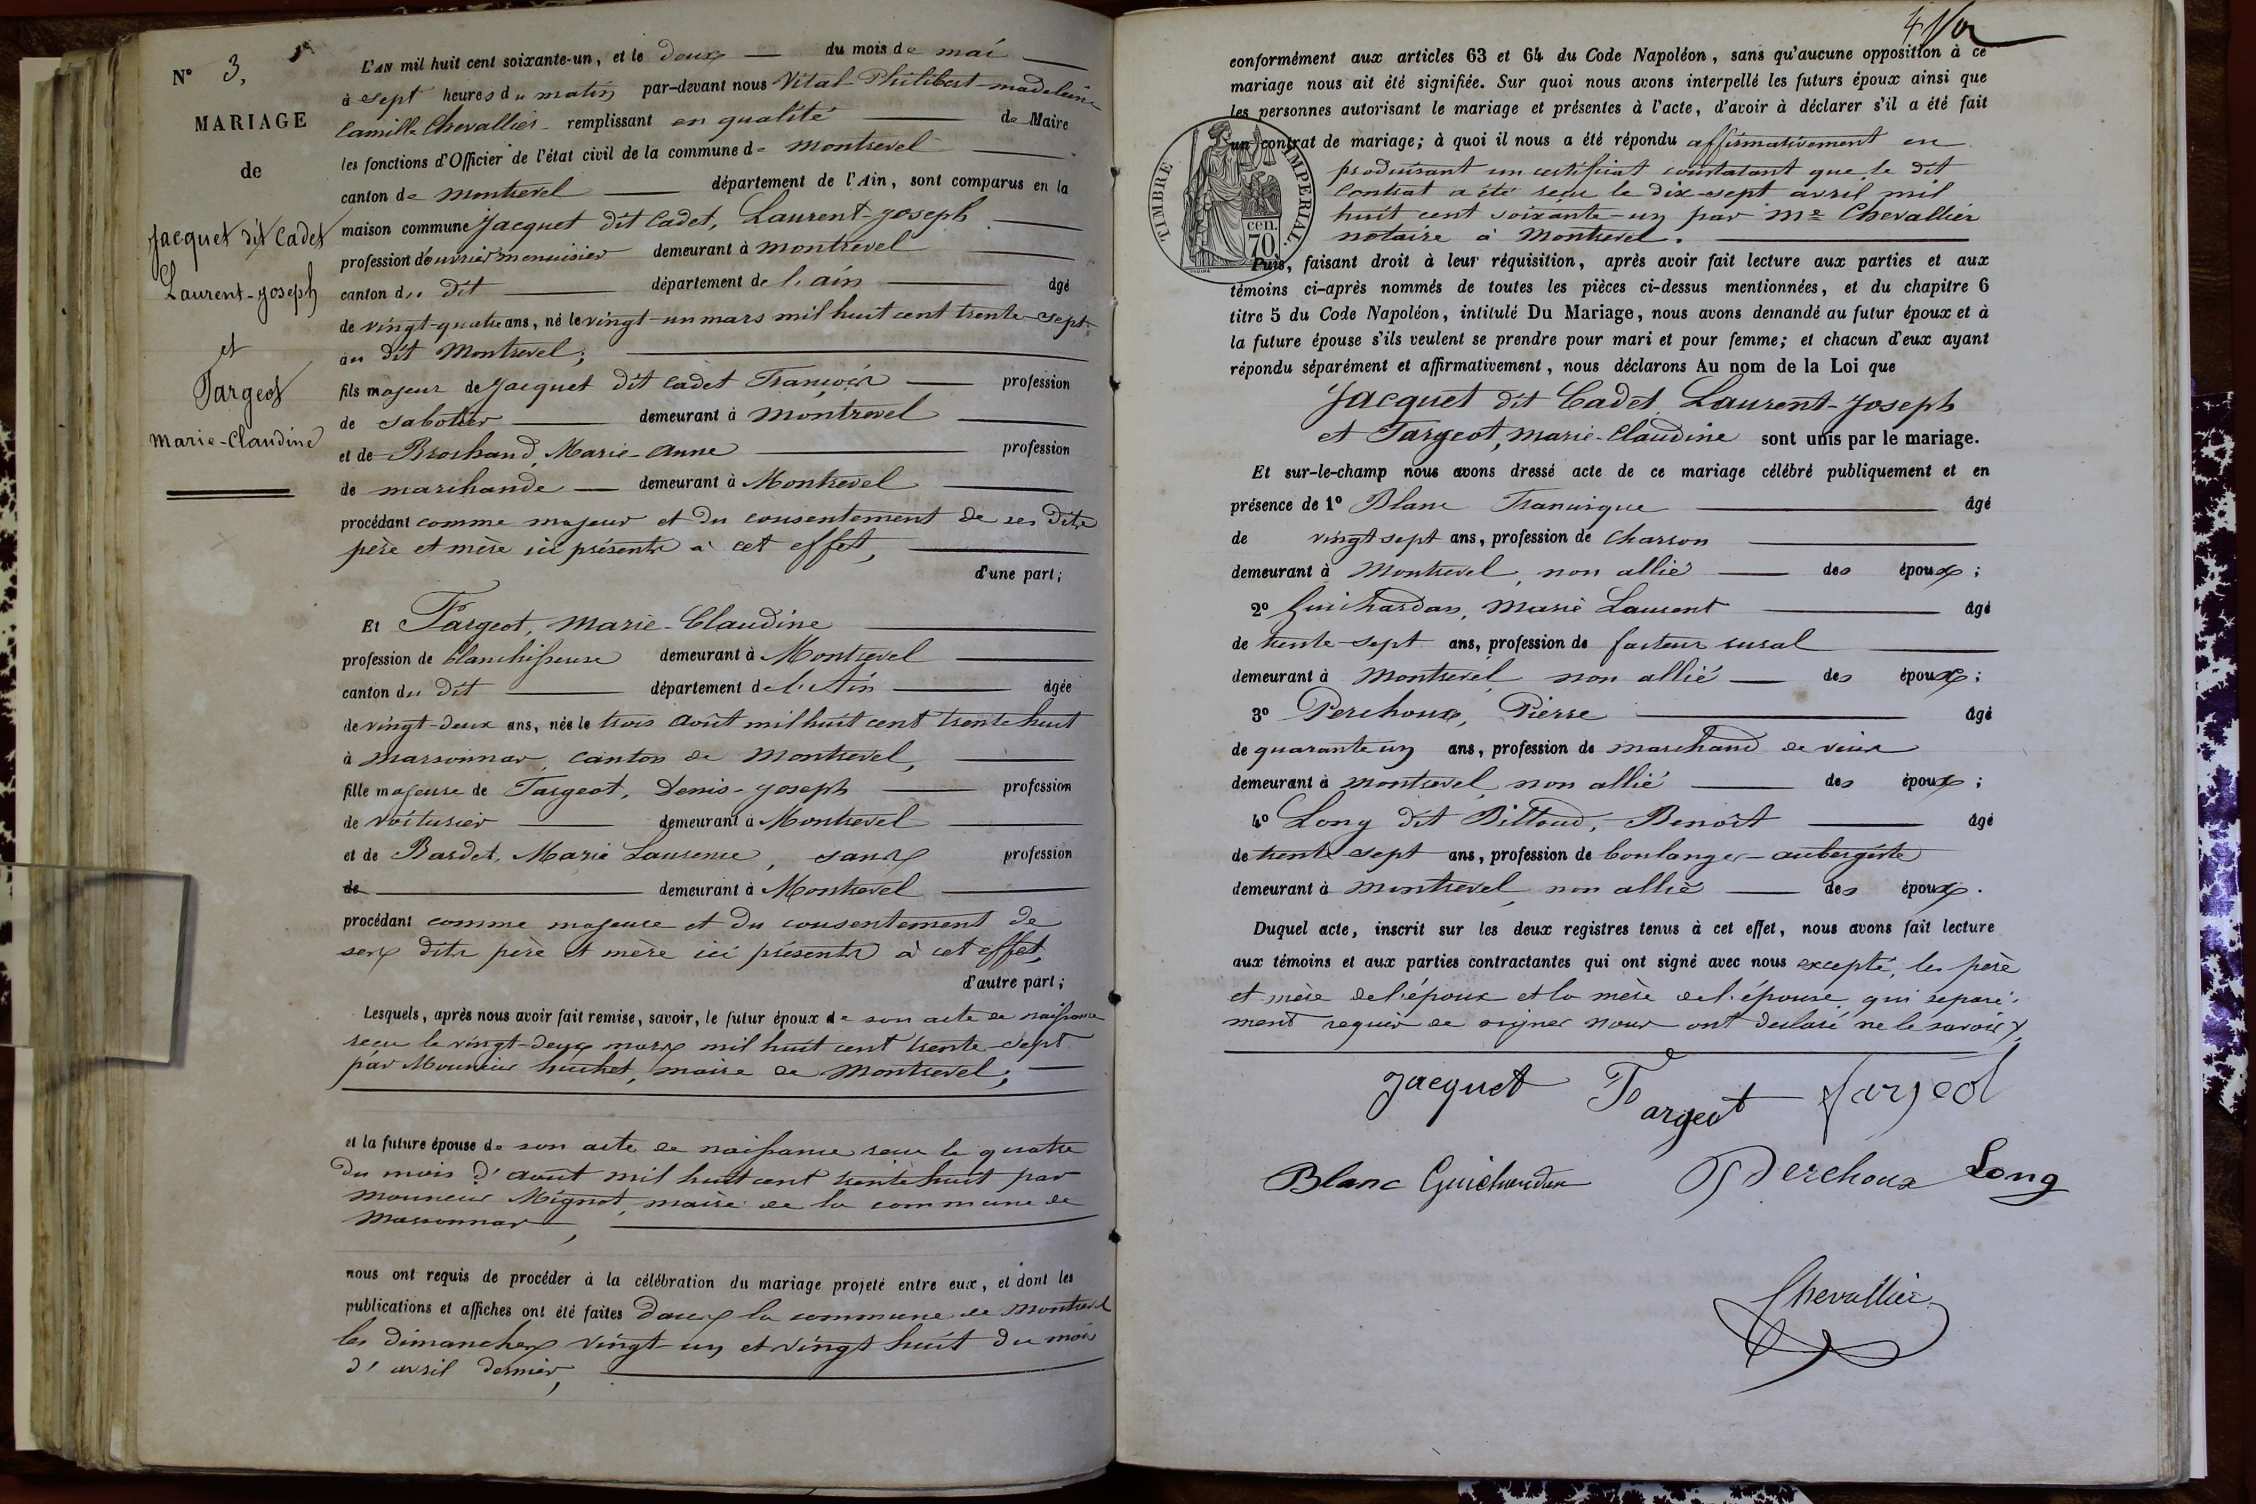 N° 3,
MARIAGE
de
Jacquet dit Cadet
Laurent-Joseph
et
Fargeot
Marie-Claudine
L'AN mil huit cent soixante-un, et le deux du mois de mai
à sept heures du matin par-devant nous Vital Philibert-madeleine
Camille Chevallier remplissant en qualité de Maire
les fonctions d'Officier de l'état civil de la commune de Montrevel
canton de Montrevel département de l'Ain, sont comparus en la
maison commune Jacquet dit Cadet, Laurent-Joseph
profession d'ouvrier menuisier demeurant à Montrevel
canton du dit département de l'ain âgé
de vingt-quatre ans, né le vingt-un mars mil huit cent trente-sept
au dit Montrevel;
fils majeur de Jacquet dit Cadet François profession
de sabotier demeurant à Montrevel
et de Brochand, Marie-Anne profession
de marchande demeurant à Montrevel
procédant comme majeur et du consentement de ses dits
père et mère ici présents à cet effet,
d'une part;
Et Fargeot, Marie-Claudine
profession de blanchisseuse demeurant à Montrevel
canton du dit département de l'Ain âgée
de vingt-deux ans, née le trois août mil huit cent trente huit
à Marsonnas, canton de Montrevel,
fille majeure de Fargeot, Denis-Joseph profession
de voiturier demeurant à Montrevel
et de Bardet, Marie Laurence, sans profession
de demeurant à Montrevel
procédant comme majeure et du consentement de
ses dits père et mère ici présents à cet effet,
d'autre part;
Lesquels, après nous avoir fait remise, savoir, le futur époux de son acte de naissance
reçu le vingt-deux mars mil huit cent trente-sept
par Monsieur huchet, maire de Montrevel;
et la future épouse de son acte de naissance reçu le quatre
du mois d'août mil huit cent trente huit par
Monsieur Mignot, maire de la commune de
Marsonnas,
nous ont requis de procéder à la célébration du mariage projeté entre eux, et dont les
publications et affiches ont été faites dans la commune de Montrevel
les dimanches vingt-un et vingt huit du mois
d'avril dernier,
conformément aux articles 63 et 64 du Code Napoléon, sans qu'aucune opposition à ce
mariage nous ait été signifiée. Sur quoi nous avons interpellé les futurs époux ainsi que
les personnes autorisant le mariage et présentes à l'acte, d'avoir à déclarer s'il a été fait
un contrat de mariage; à quoi il nous a été répondu affirmativement en
produisant un certificat constatant que le dit
Contrat a été reçu le dix-sept avril mil
huit cent soixante-un par Me Chevallier
notaire à Montrevel.
TIMBRE IMPERIAL.
cen.
70
Puis, faisant droit à leur réquisition, après avoir fait lecture aux parties et aux
témoins ci-après nommés de toutes les pièces ci-dessus mentionnées, et du chapitre 6
titre 5 du Code Napoléon, intitulé Du Mariage, nous avons demandé au futur époux et à
la future épouse s'ils veulent se prendre pour mari et pour femme; et chacun d'eux ayant
répondu séparément et affirmativement, nous déclarons Au nom de la Loi que
Jacquet dit Cadet Laurent-Joseph
et Fargeot, Marie-Claudine sont unis par le mariage.
Et sur-le-champ nous avons dressé acte de ce mariage célébré publiquement et en
présence de 1° Blanc Francisque âgé
de vingt sept ans, profession de Charron
demeurant à Montrevel, non allié des époux;
2° Guichardan, Marie Laurent âgé
de trente-sept ans, profession de facteur rural
demeurant à Montrevel non allié des époux;
3° Perchoux, Pierre âgé
de quarante un ans, profession de marchand de vins
demeurant à Montrevel, non allié des époux;
4° Long dit Billoud, Benoît âgé
de trente-sept ans, profession de boulanger-aubergiste
demeurant à Montrevel non allié des époux.
Duquel acte, inscrit sur les deux registres tenus à cet effet, nous avons fait lecture
aux témoins et aux parties contractantes qui ont signé avec nous excepté, les père
et mère de l'époux et la mère de l'épouse, qui séparé-
ment requis de signer nous ont déclaré ne le savoir,
Jacquet Fargeot fargeot
Blanc Guichardan Perchoux Long
Chevallier